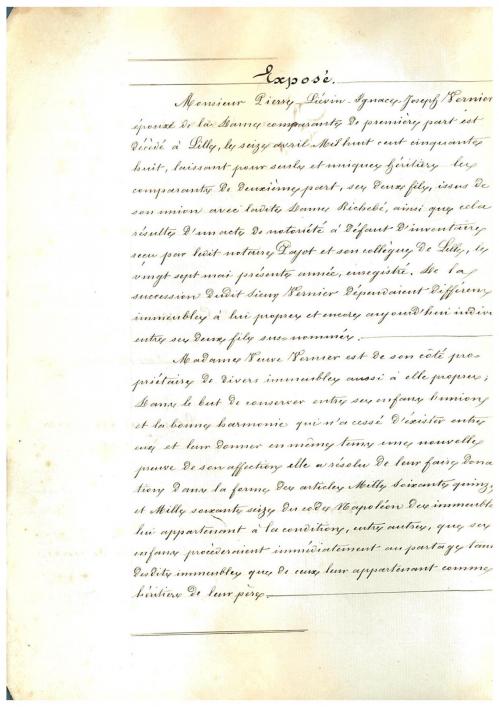 Exposé.
Monsieur Pierre Liévin Ignace Joseph Vernier
époux de la Dame comparante de première part est
décédé à Lille, le seize avril Mil huit cent cinquante
huit, laissant pour seuls et uniques héritiers les
comparants de deuxième part, ses deux fils, issus de
son union avec ladite Dame Richebé, ainsi que cela
résulte d'un acte de notoriété à défaut d'inventaire
reçu par ledit notaire Pajot et son collègue de Lille, le
vingt sept mai présente année, enregistré. De la
succession dudit Sieur Vernier dépendaient différens
immeubles à lui propres et encore aujourd'hui indivi
entre ses deux fils sus nommés.
Madame Veuve Vernier est de son côté pro-
priétaire de divers immeubles aussi à elle propres;
Dans le but de conserver entre ses enfans l'union
et la bonne harmonie qui n'a cessé d'éxister entre
eux et leur donner en même tems une nouvelle
preuve de son affection elle a résolu de leur faire dona
tion dans la forme des articles Mille soixante quinze
et Mille soixante seize du code Napoléon des immeuble
lui appartenant à la condition, entre autres, que ses
enfans procèderaient immédiatement au partage tant
desdits immeubles que de ceux leur appartenant comme
héritiers de leur père.